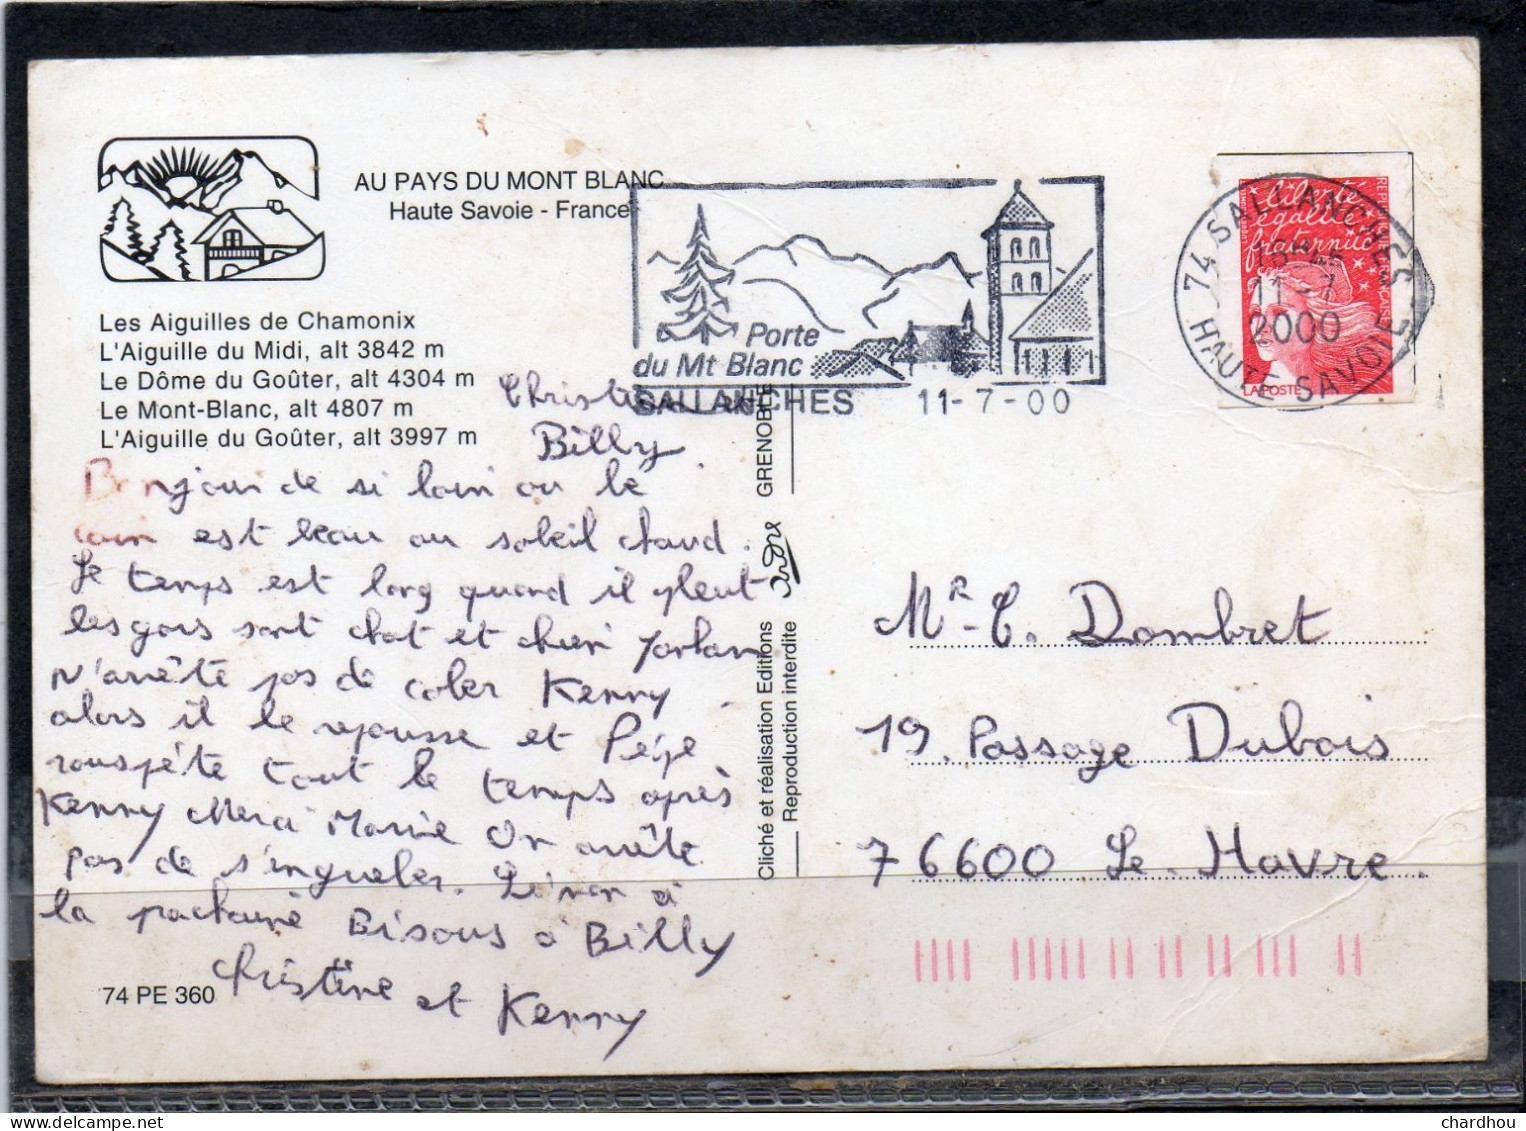 AU PAYS DU MONT BLANC
Haute Savoie - France
Les Aiguilles de Chamonix
L'Aiguille du Midi, alt 3842 m
Le Dôme du Goûter, alt 4304 m
Le Mont-Blanc, alt 4807 m
L'Aiguille du Goûter, alt 3997 m
Christine et
Billy
Bonjour de si loin ou le
coin est beau au soleil chaud.
Le temps est long quand il pleut
les gars sont chat et chien
n'arrête pas de coler Kenny
alors il le repousse et Pépé
rouspéte tout le temps après
Kenny Merci Mamie On arrête
pas de s'engueler. à
la Bisous à Billy
Christine et Kenny
74 PE 360
Porte
du Mt Blanc
SALLANCHES 11-7-00
74 SALLANCHES
11-7
2000
HAUTE SAVOIE
liberté
égalité
fraternité
LA POSTE
Cliché et réalisation Editions André GRENOBLE
Reproduction interdite
Mr. C. Dombret
19. Passage Dubois
76600 Le Havre.
chardhou